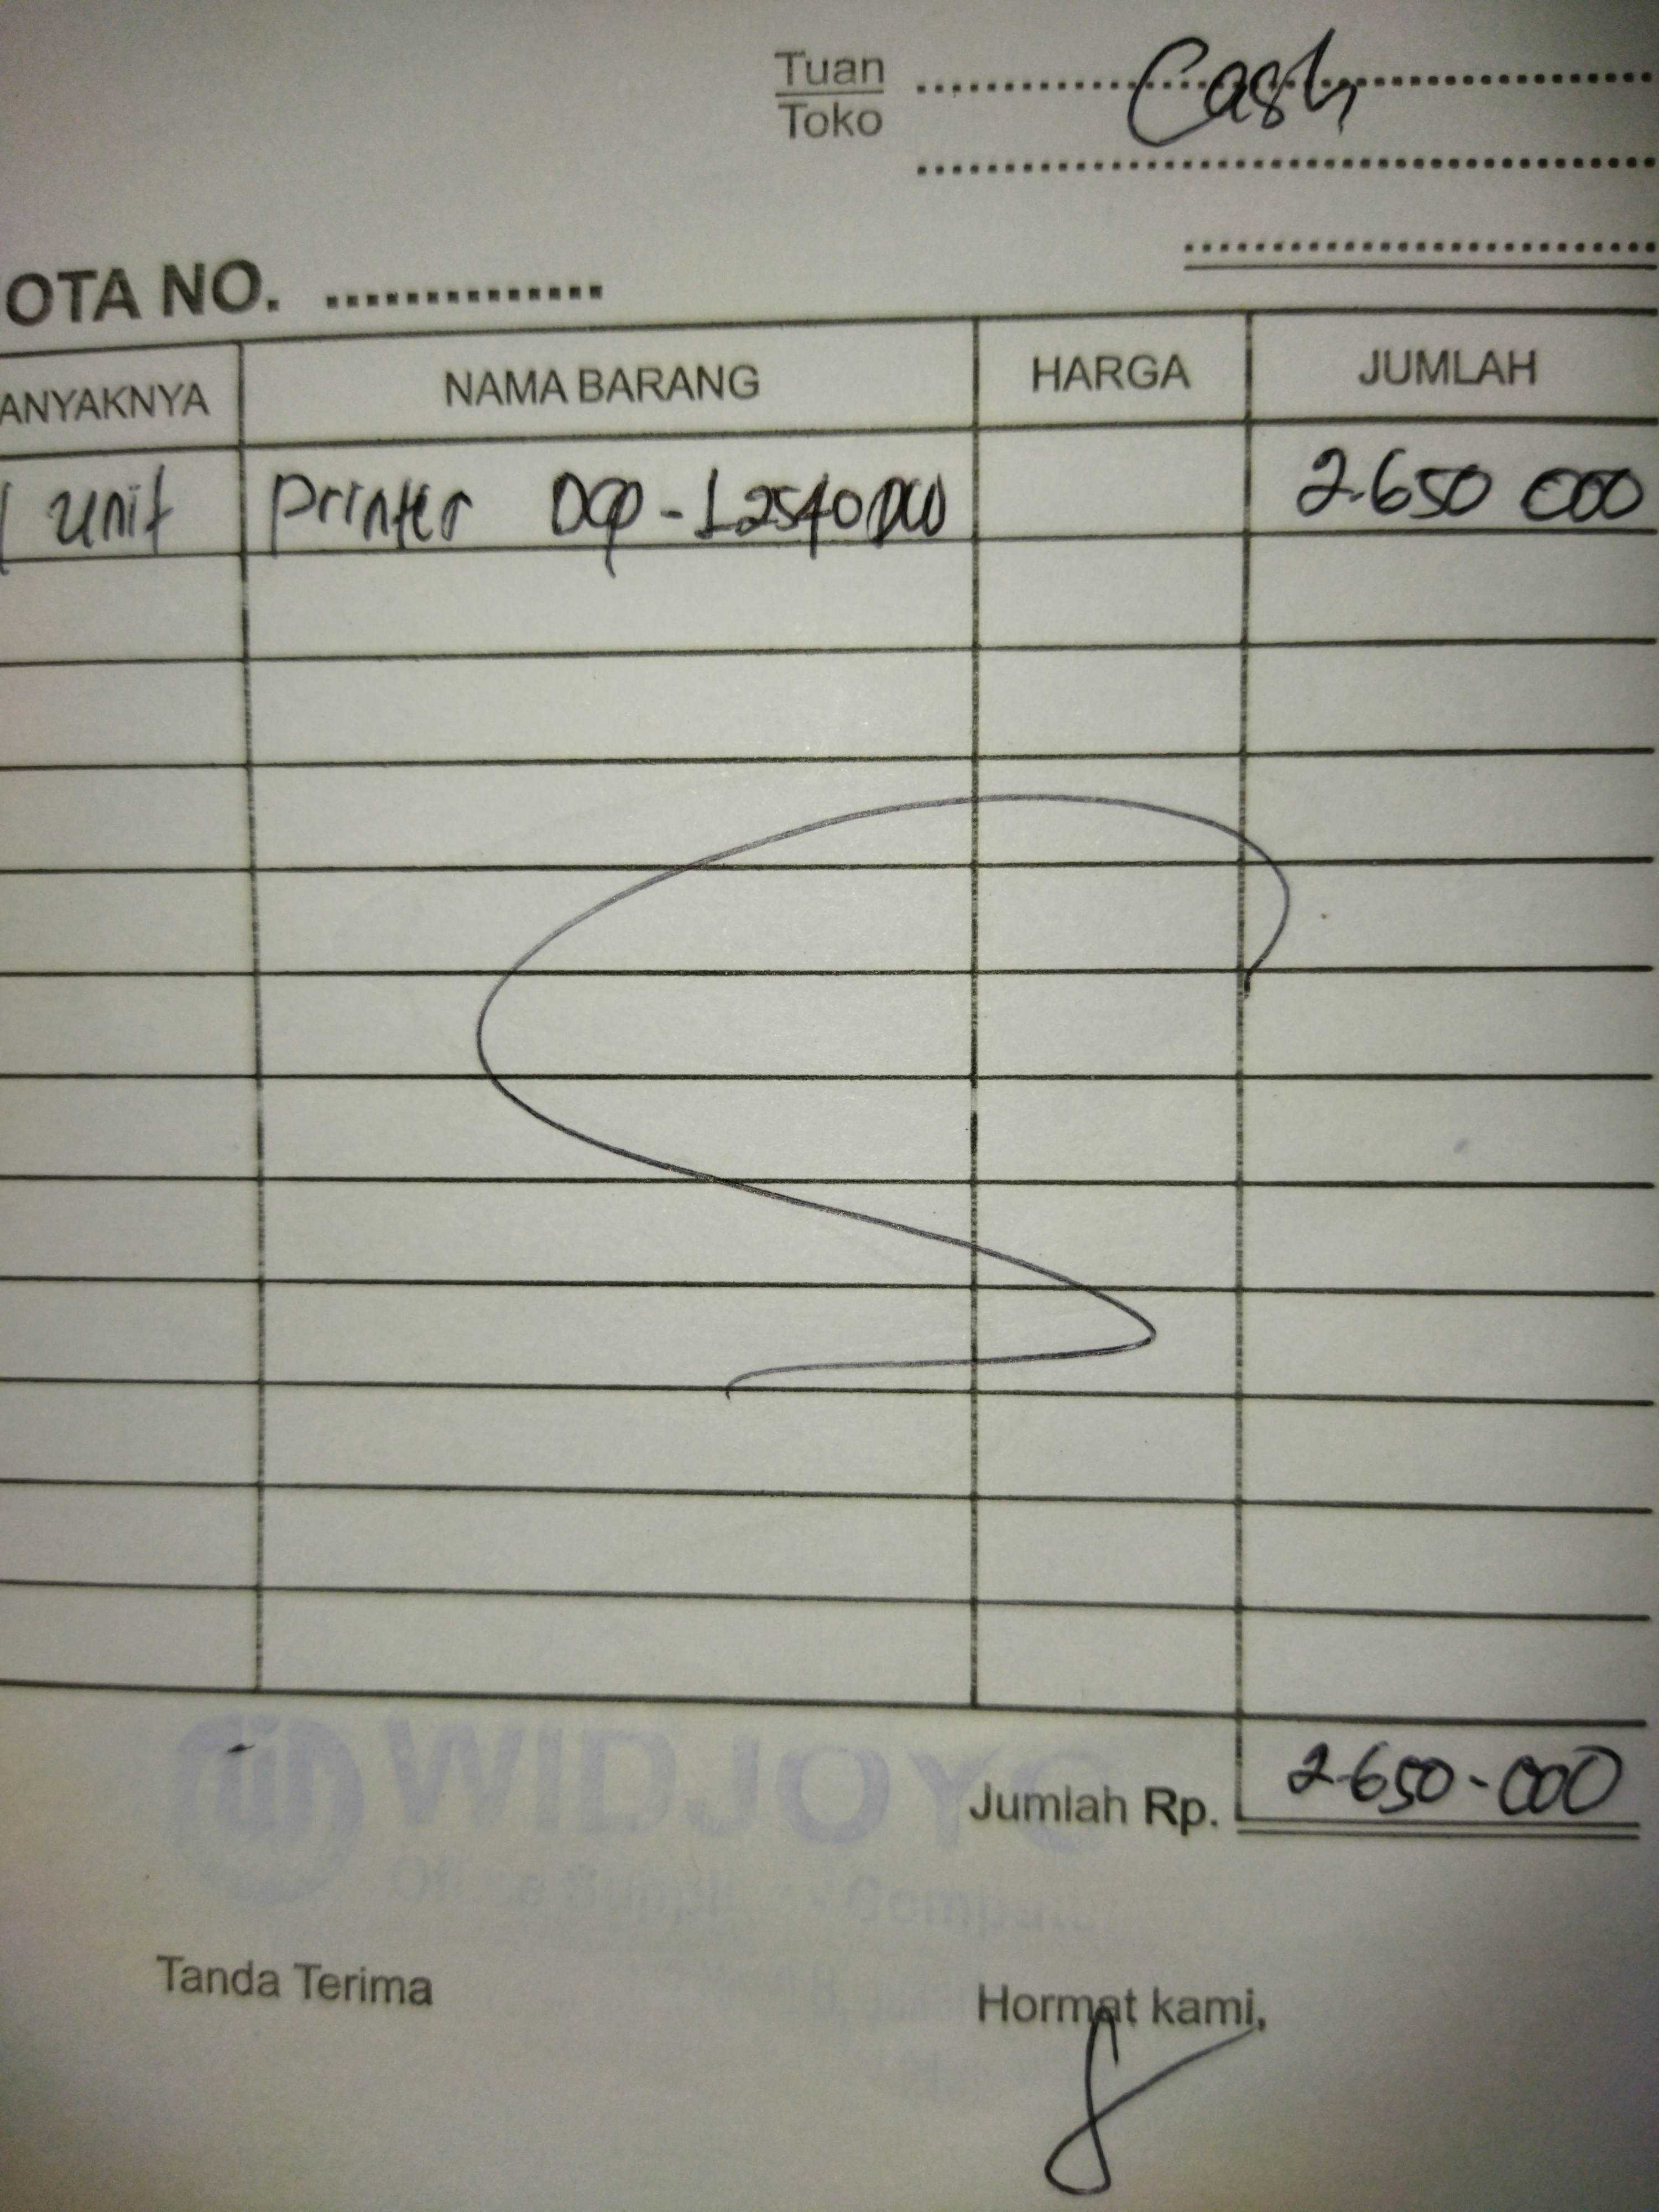 Tuan Cash
Toko
OTA NO. ..............
ANYAKNYA NAMA BARANG HARGA JUMLAH
1 unit Printer DCP-L2540DW 2.650 000
WIDJOYO
Jumlah Rp. 2.650-000
Office Supplies - Computer
Tanda Terima Hormat kami,